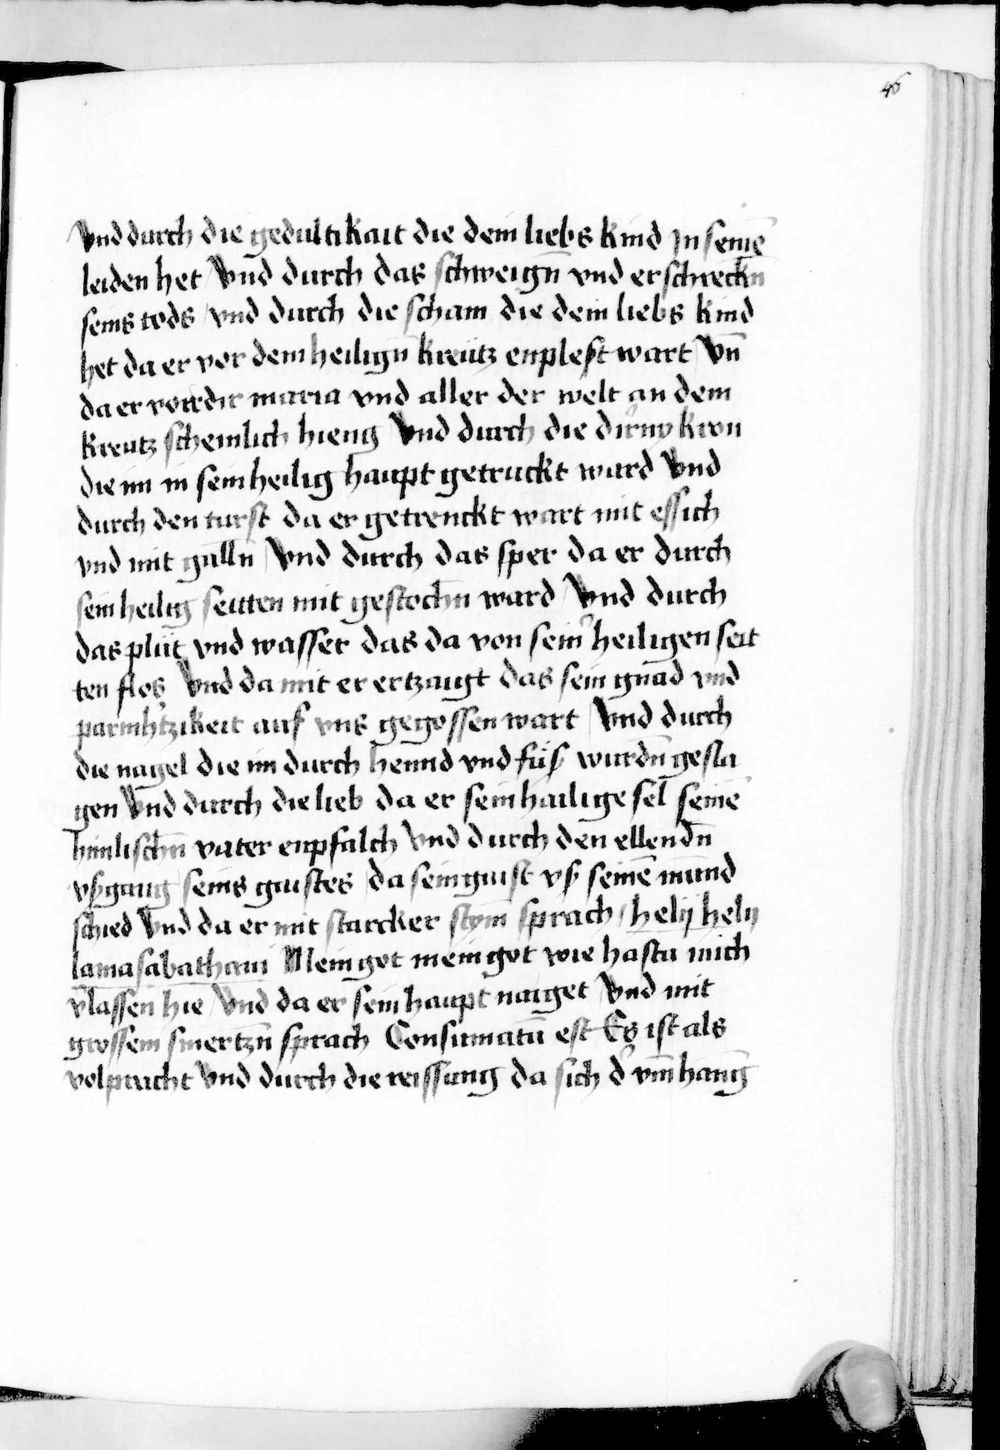 46
Vnd durch die gedultikait die dein liebs kind Jn seinē
leiden het Vnd durch das schweign̄ vnd erschreckn̄
seins tods vnd durch die scham die dein liebs kind
het da er vor dem heilign̄ kreutz enplest wart Vn̄
da er vor dir maria vnd aller der welt an dem
kreutz scheinlich hieng Vnd durch die dirny kron
die im in sein heilig haupt getruckt ward Vnd
durch den turst da er getrenckt wart mit essich
vnd mit galln̄ Vnd durch das sper da er durch
sein heilig seitten mit gestochn̄ ward Vnd durch
das plüt vnd wasser das da von sein' heiligen seit
ten flos Vnd da mit er ertzaigt das sein gnad vnd
parmh'tzikeit auf vns gegossen wart Vnd durch
die nagel die im durch hennd vnd füß wurdn̄ gesla
gen Vnd durch die lieb da er sein hailige sel seinē
himlischn̄ vater enpfalch Vnd durch den ellendn̄
vßgang seins gaistes da sein gaist vß seinē mund
schied Vnd da er mit starcker stym̄ sprach helij helij
lamasabathani Mein got mein got wie hastu mich
v̄lassen hie Vnd da er sein haupt naiget Vnd mit
grossem smertzn̄ sprach Consumatū est Es ist als
volpracht Vnd durch die reissung da sich d' vm̄hang